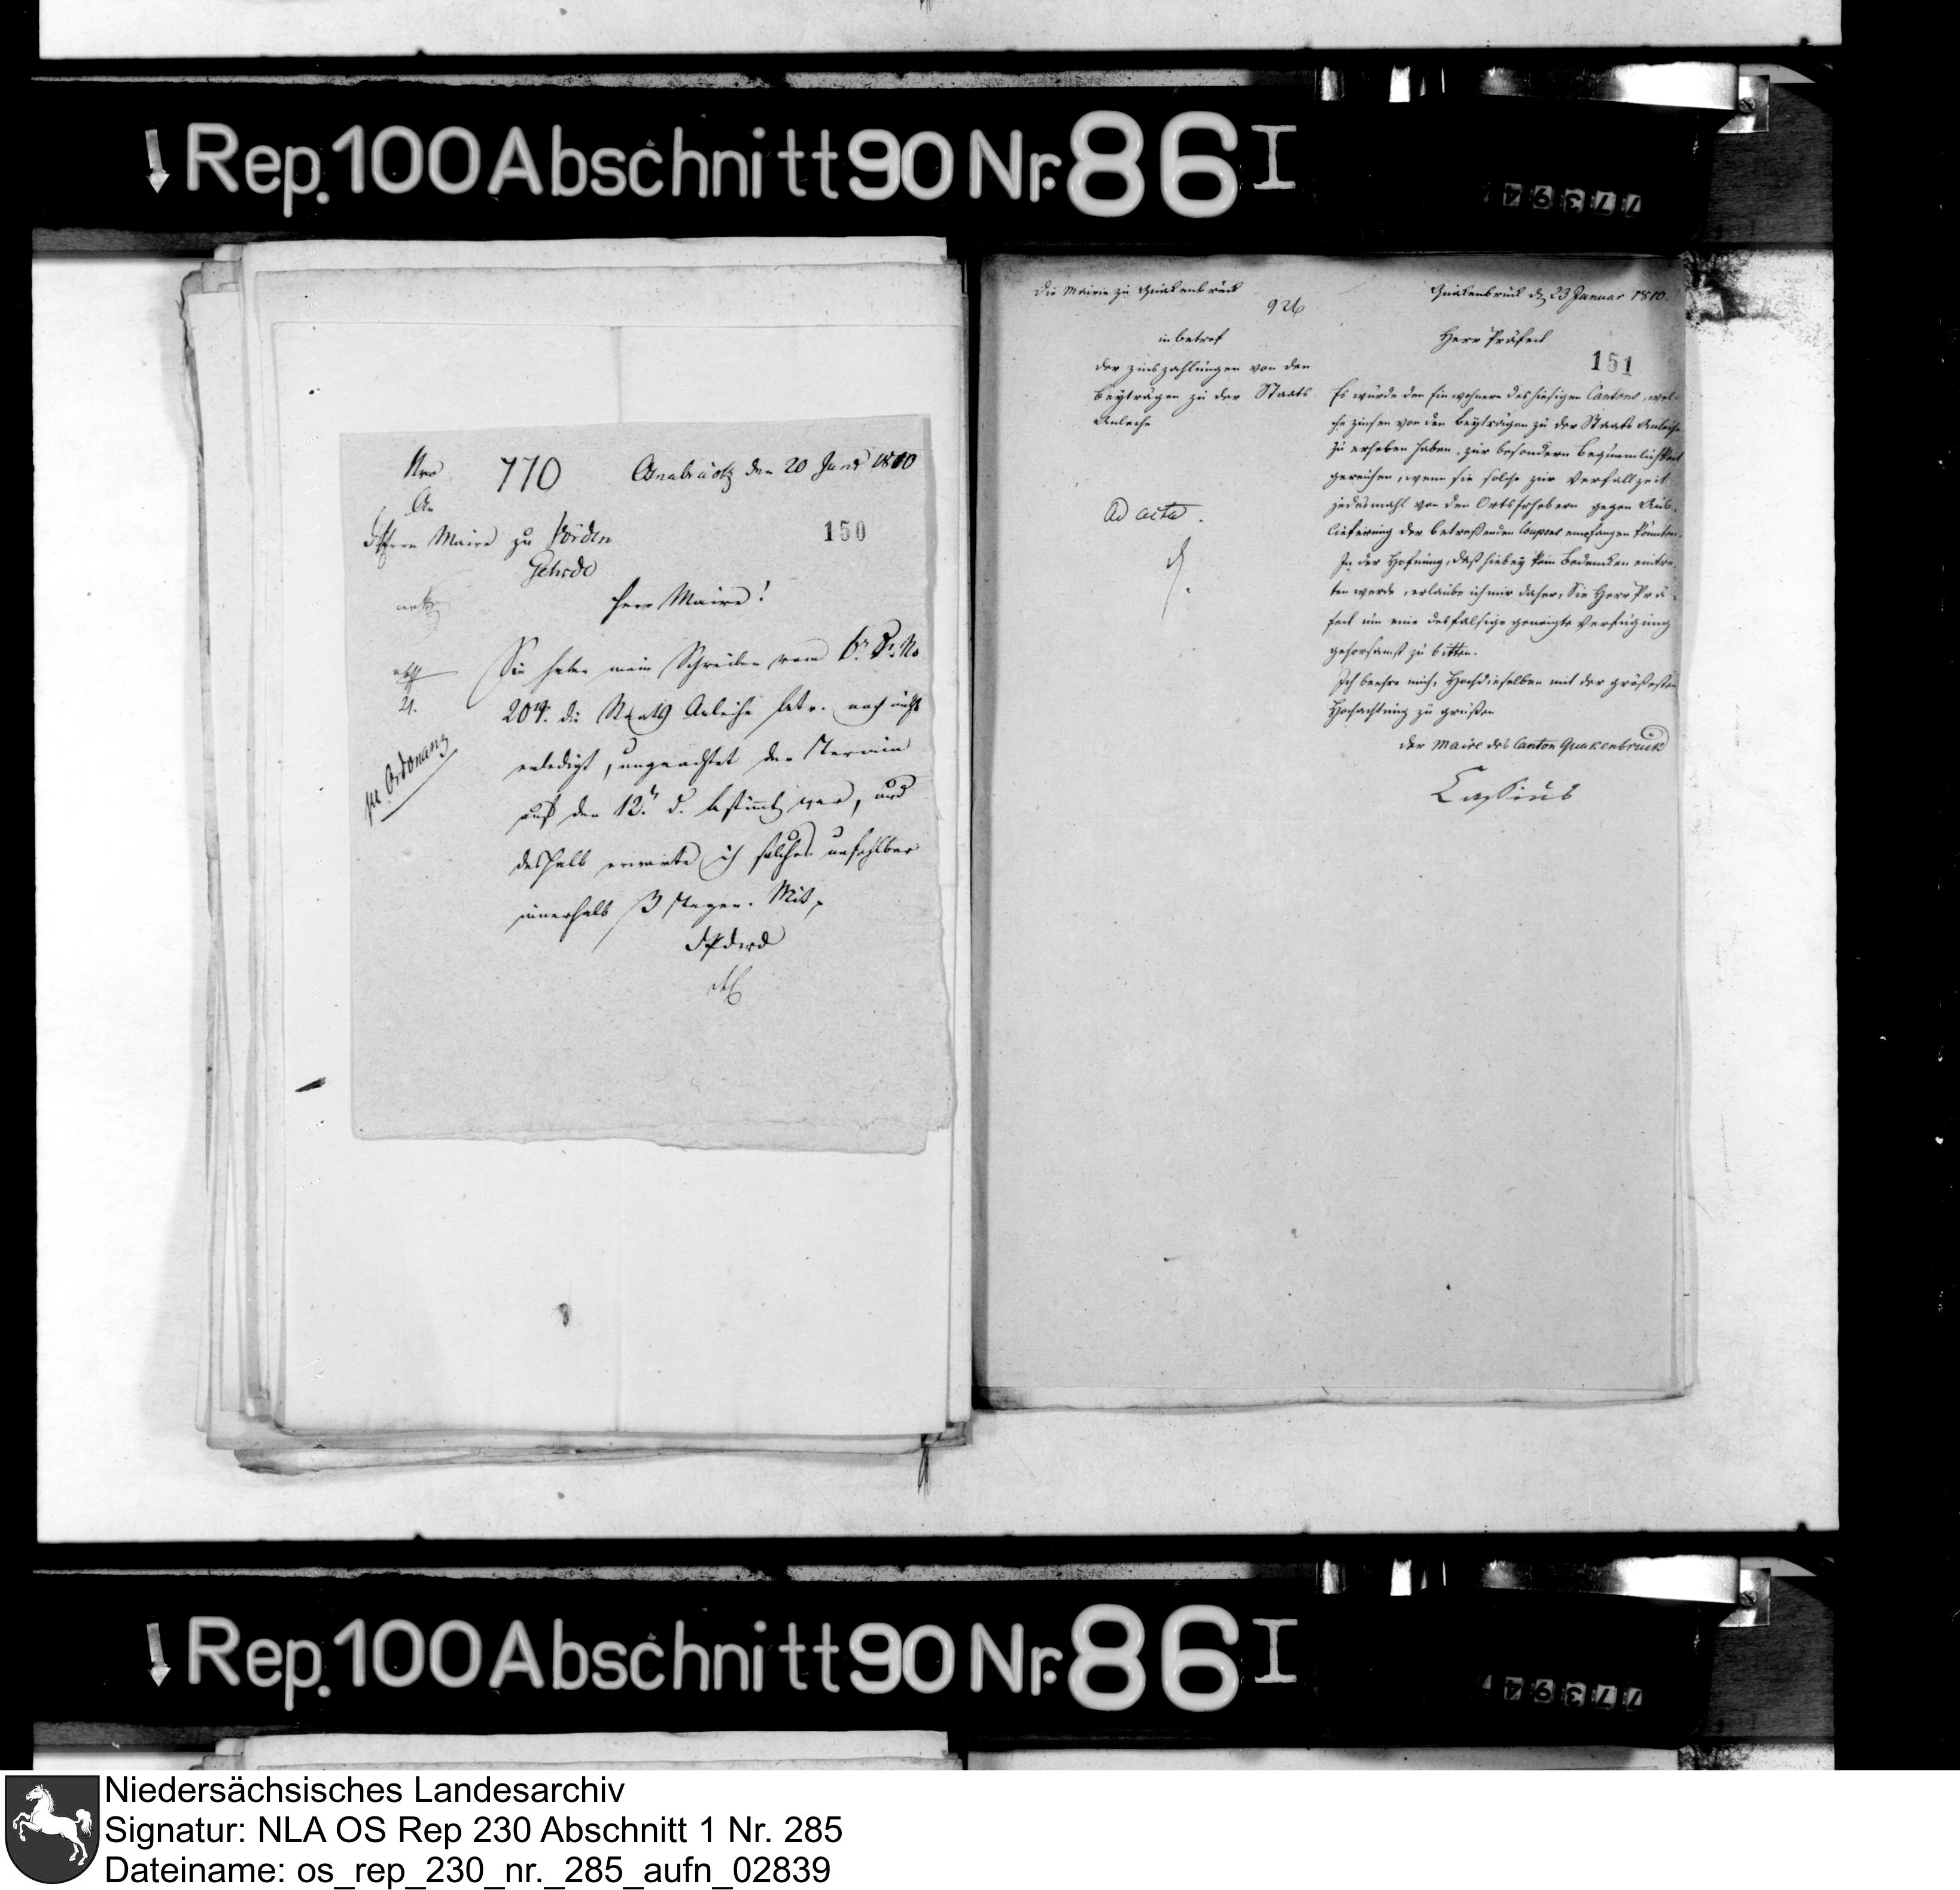 ↓ Rep. 100 Abschnitt 90 Nr. 86 I
Nro 770 Osnabrück den 20 Jan 1810
An
Herrn Maire zu Vörden
Gehrde
150
Herr Maire!
Sie haben mein Schreiben vom
die Staats Anleihe betr. noch nicht
erledigt, ungeachtet der Termin
auf den 12. d. bestimmt war, und
deshalb erwarte ich solches unfehlbar
innerhalb 3 Tagen. Mit
21.
pr Ordonanz
Die Mairie zu Quakenbrück
926
in betref
der Zinszahlungen von den
Beyträgen zu der Staats
Anleihe
Ad acta.
Quakenbrück d 23 Januar 1810.
Herr Präfect
151
Es würde den Einwohnern des hiesigen Cantons, wel-
che Zinsen von den Beyträgen zu der Staats Anleihe
zu erheben haben, zur besondern Bequemlichkeit
gereichen, wenn sie solche zur Verfallzeit
jedesmahl von den Ortserhebern gegen Aus-
lieferung der betreffenden Coupons empfangen könnten.
In der Hofnung, daß hiebey kein Bedencken eintre-
ten werde, erlaube ich mir daher, Sie Herr Prä-
fect um eine desfalsige geneigte Verfügung
gehorsamst zu bitten.
Ich beehre mich, Hochdieselben mit der größesten
Hochachtung zu grüßen
der Maire des Canton Quakenbrück
Cassius
↓ Rep. 100 Abschnitt 90 Nr. 86 I
Niedersächsisches Landesarchiv
Signatur: NLA OS Rep 230 Abschnitt 1 Nr. 285
Dateiname: os_rep_230_nr._285_aufn_02839